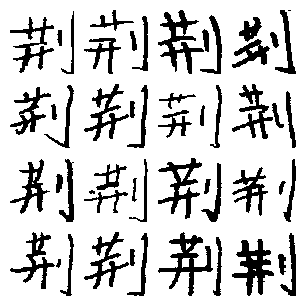 荆荆荆荆
荆荆荆荆
荆荆荆荆
荆荆荆荆